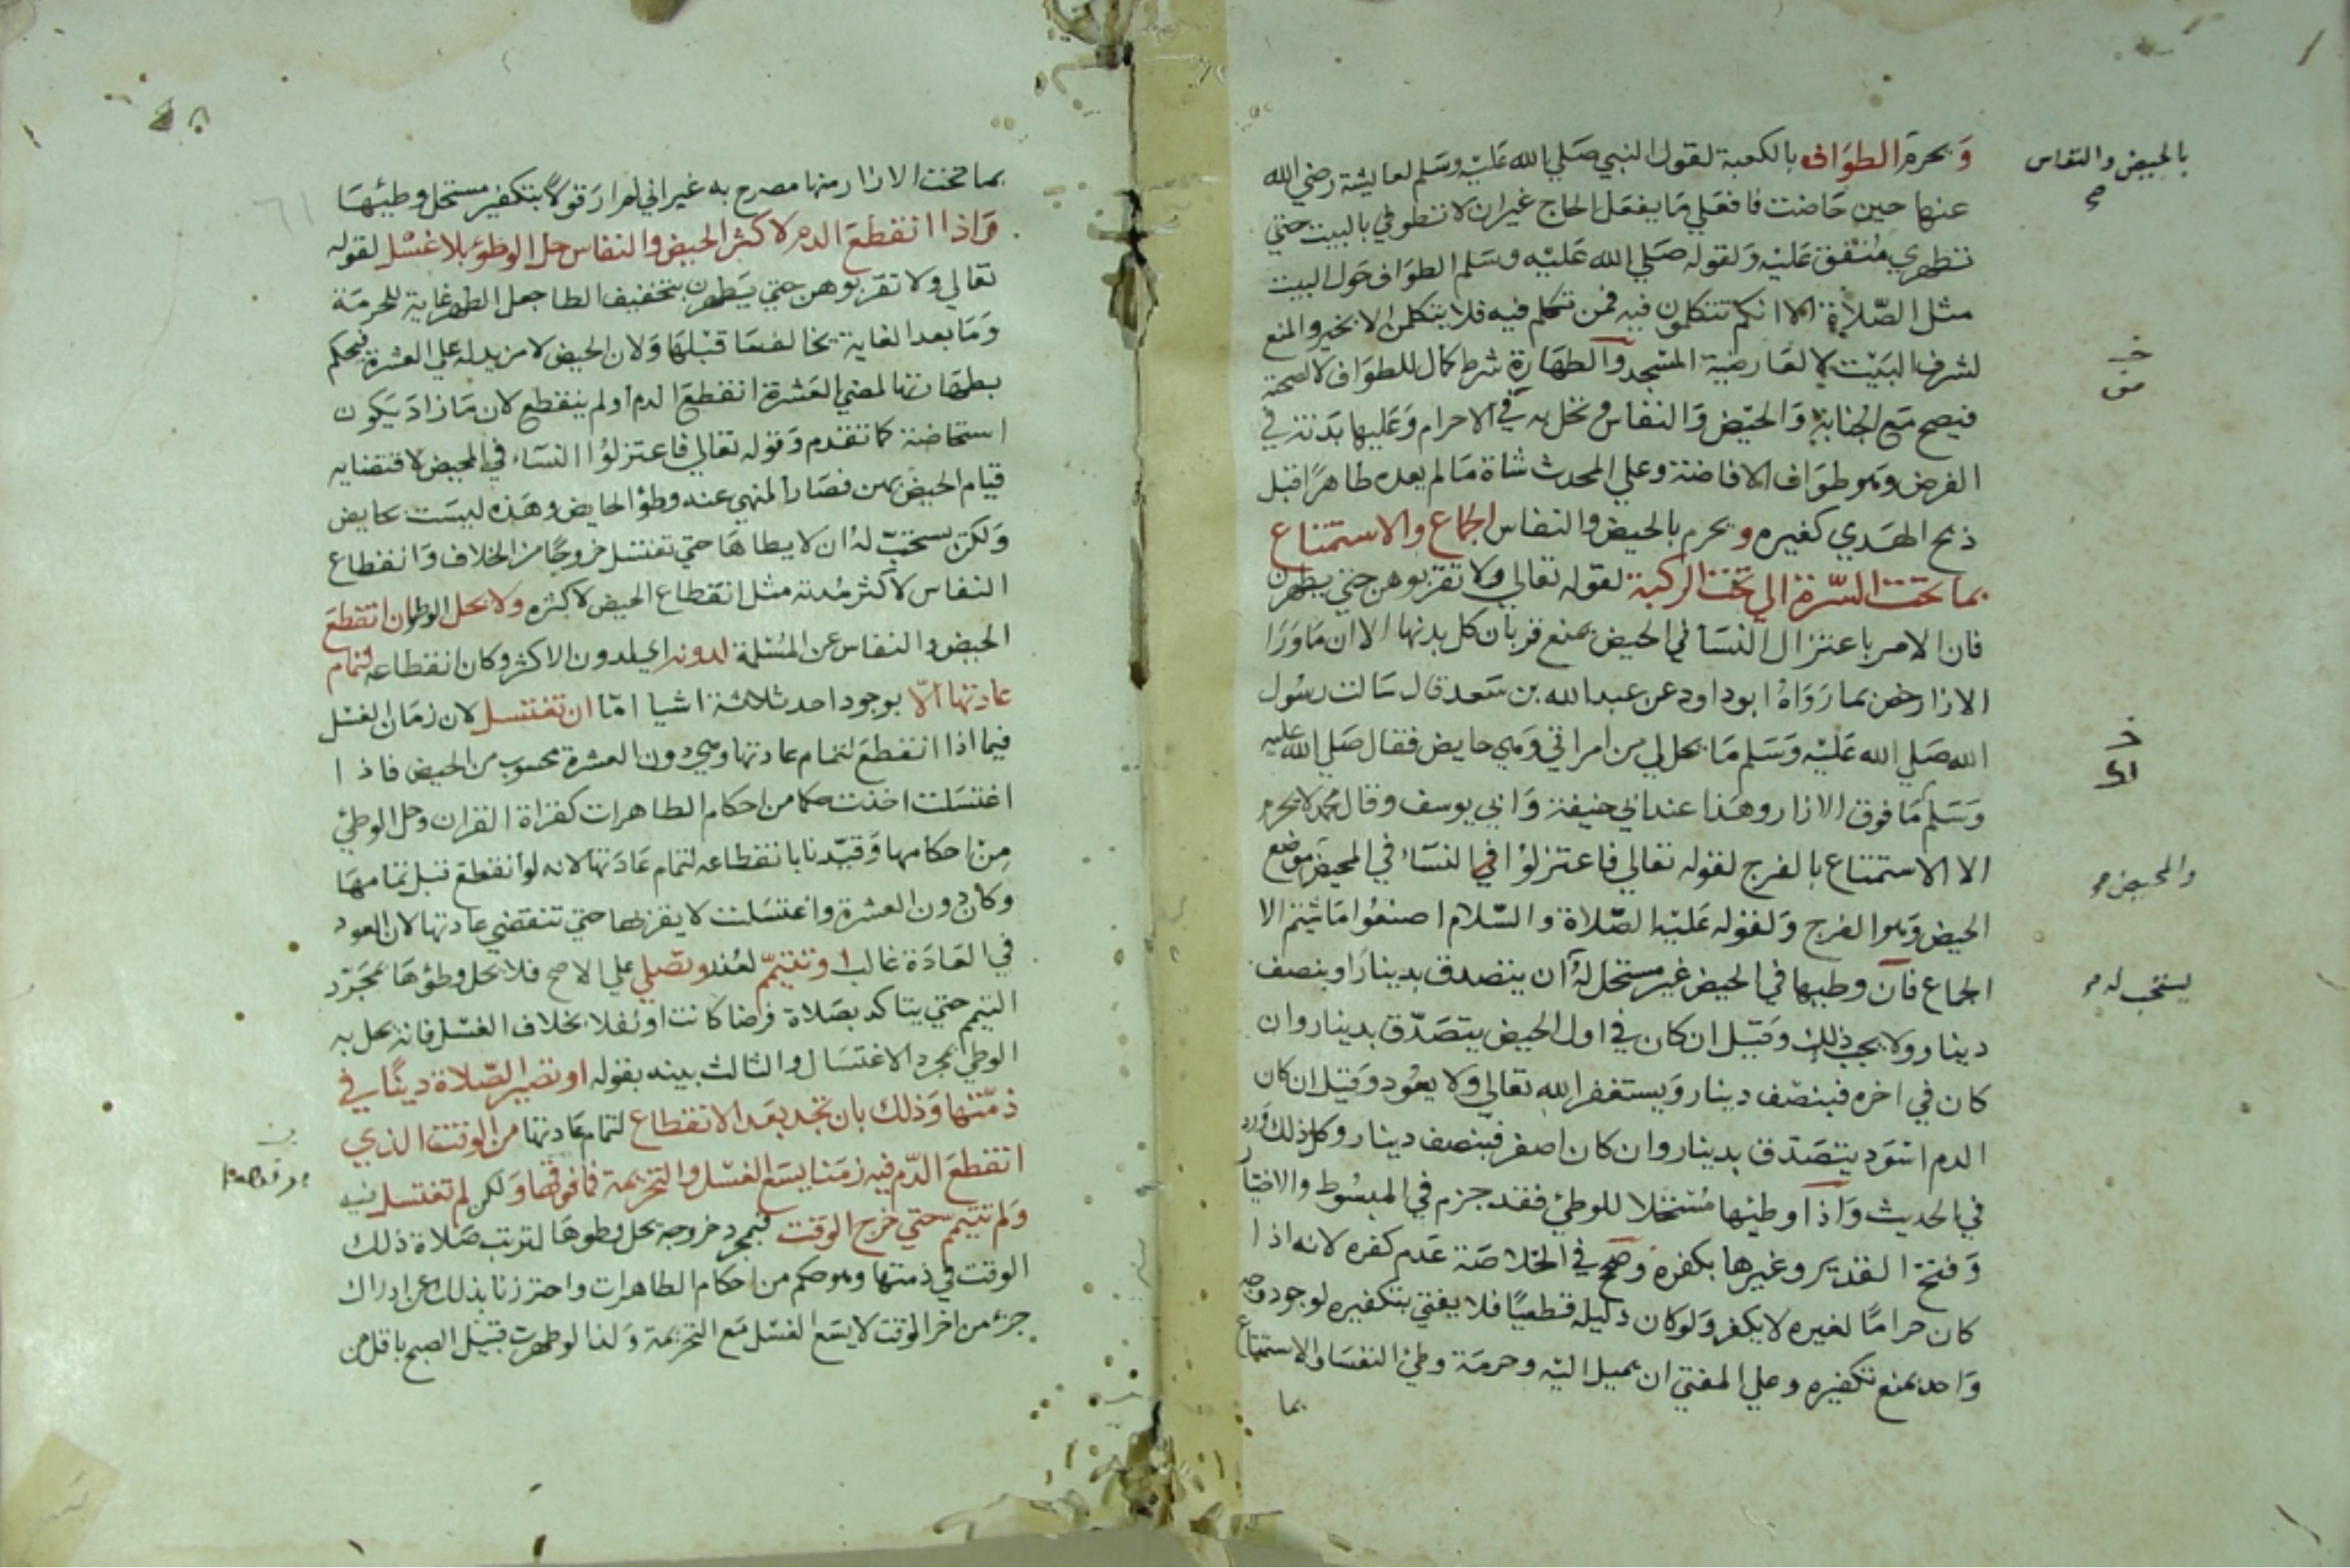 ويحرم الطواف بالكعبة لقول النبي صلي الله عليه وسلم لعايشة رضي الله
بالحيض والنفاس
عنها حين حاضت فافعلي ما يفعل الحاج غير ان لا تطوفي بالبيت حتي
تطهري متفق عليه ولقوله صلي الله عليه وسلم الطواف حول البيت
مثل الصلاة الا انكم تتكلمون فيه فمن تكلم فيه فلا يتكلمن الا بخير والمنع
لشرف البيت لا لعارضية المسجد والطهارة شرط كمال للطواف لا لصحته
فيصح مع الجنابة والحيض والنفاس وتحل به في الاحرام وعليها بدنة في
الفرض وهو طواف الافاضة وعلي المحدث شاة ما لم يعده طاهرا قبل
ذبح الهدي كغيره ويحرم بالحيض والنفاس الجماع والاستمتاع
بما تحت السرة الي تحت الركبة لقوله تعالي ولا تقربوهن حتي يطهرن
فان الامر باعتزال النسا في الحيض يمنع قربان كل بدنها الا ان ما ورا
الازار خص بما رواه ابو داود عن عبد الله بن سعد قال سالت رسول
الله صلي الله عليه وسلم ما يحل لي من امراتي وهي حايض فقال صلي الله عليه
وسلم ما فوق الازار وهذا عند ابي حنيفة وابي يوسف وقال محمد لا يحرم
الا الاستمتاع بالفرج لقوله تعالي فاعتزلوا في النساء في المحيض موضع
والمحيض
الحيض وهو الفرج ولقوله عليه الصلاة والسلام اصنعوا ما شيتم الا
الجماع فان وطيها في الحيض غير مستحل له ان يتصدق بدينار او بنصف
يستحب له
دينار ولا يجب ذلك وقيل ان كان في اول الحيض يتصدق بدينار وان
كان في اخره فبنصف دينار ويستغفر الله تعالي ولا يعود وقيل ان كان
الدم اسود يتصدق بدينار وان كان اصفر فبنصف دينار وكل ذلك ورد
في الحديث واذا وطيها مستحلا للوطئ فقد جزم في المبسوط والاختيار
وفتح القدير وغيرها بكفره وصح في الخلاصة عدم كفره لانه اذا
كان حراما لغيره لا يكفر ولو كان دليله قطعيا فلا يفتي بتكفيره لوجود
واحد يمنع تكفيره وعلي المفتي ان يميل اليه وحرمة وطئ النفسا والاستمتاع
بما
بما تحت الازار منها مصرح به غير اني لم ار قولا بتكفير مستحل وطئها
واذا انقطع الدم لاكثر الحيض والنفاس حل الوطؤ بلا غسل لقوله
تعالي ولا تقربوهن حتي يطهرن بتخفيف الطا جعل الطهر غاية للحرمة
وما بعد الغاية يخالف ما قبلها ولان الحيض لا مزيد له علي العشرة فيحكم
بطهارتها لمضي العشرة انقطع الدم او لم ينقطع لان ما زاد يكون
استحاضة كما تقدم وقوله تعالي فاعتزلوا النساء في المحيض لاقتضايه
قيام الحيض بهن فصار المنهي عنه وطؤ الحايض وهذه ليست بحايض
ولكن يستحب له ان لا يطاها حتي تغتسل خروجا من الخلاف وانقطاع
النفاس لاكثر مدته مثل انقطاع الحيض لاكثره ولا يحل الوطؤ ان انقطع
الحيض والنفاس عن المسلمة لدونه اي لدون الاكثر وكان انقطاعه لتمام
عادتها الا بوجود احد ثلاثة اشيا اما ان تغتسل لان زمان الغسل
فيما اذا انقطع لتمام عادتها وهي دون العشرة محسوب من الحيض فاذا
اغتسلت اخذت حكما من احكام الطاهرات كقراة القران وحل الوطئ
من احكامها وقيدنا بانقطاعه لتمام عادتها لانه لو انقطع قبل تمامها
وكان دون العشرة واغتسلت لا يقربها حتي تنقضي عادتها لان العود
في العادة غالب او تتيمم لعذر وتصلي علي الاصح فلا يحل وطؤها بمجرد
التيمم حتي يتاكد بصلاة فرضا كانت او نفلا بخلاف الغسل فانه يحل به
الوطي بمجرد الاغتسال والثالث بينه بقوله او تصير الصلاة دينا في
ذمتها وذلك بان تجد بعد الانقطاع لتمام عادتها من الوقت الذي
انقطع الدم فيه زمنا يسع الغسل والتحريمة فما فوقها ولكن لم تغتسل فيه
ولم تتيمم حتي خرج الوقت فبمجرد خروجه يحل وطوها لترتب صلاة ذلك
الوقت في ذمتها وهو حكم من احكام الطاهرات واحترزنا بذلك عن ادراك
جزء من اخر الوقت لا يسع الغسل مع التحريمة ولذا لو طهرت قبيل الصبح باقل من